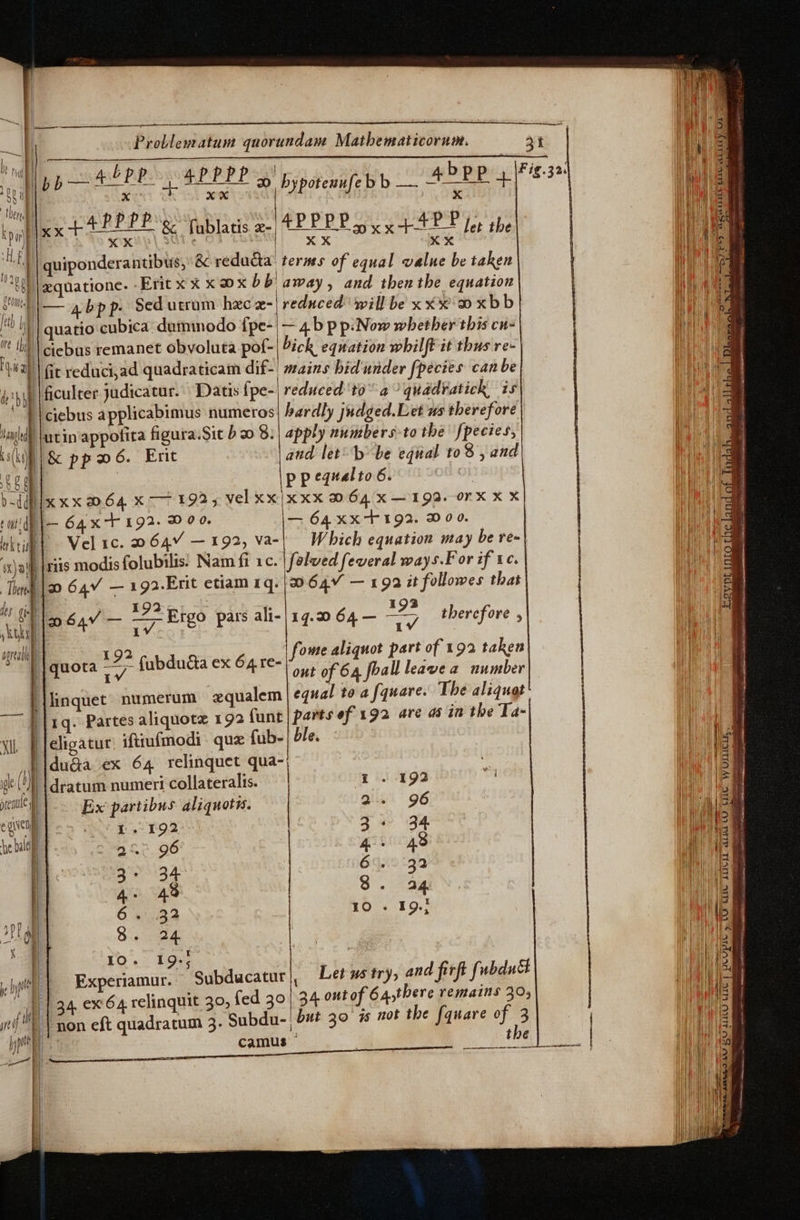 Problematum quorundam Mathematicorum. 31
bb — 4bpp/x + 4pppp/xx ∞
xx + 4pppp/xx & ſublatis æ-
quiponderantibus, & reducta
æquatione. Erit x x x ∞ x bb
— 4bpp. Sed utrum hæc æ-
quatio cubica dummodo ſpe-
ciebus remanet obvoluta poſ-
ſit reduci, ad quadraticam dif-
ficulter judicatur. Datis ſpe-
ciebus applicabimus numeros
ut in appoſita figura. Sit b ∞ 8.
& pp ∞ 6. Erit
x x x ∞ 64 x — 192, vel xx
— 64 x + 192. ∞ 0 0.
Vel 1c. ∞ 64√ — 192, va-
riis modis ſolubilis. Nam ſi 1c.
∞ 64√ — 192. Erit etiam 1q.
∞ 64√ — 192/1√ Ergo pars ali-
quota 192/1√ ſubducta ex 64 re-
linquet numerum æqualem
1q. Partes aliquotæ 192 ſunt
eligatur iſtiuſmodi quæ ſub-
ducta ex 64 relinquet qua-
dratum numeri collateralis.
Ex partibus aliquotis.
1. 192
2. 96
3. 34
4. 48
6. 32
8. 24
10. 19.;
Experiamur. Subducatur
34 ex 64 relinquit 30, ſed 30
non eſt quadratum 3. Subdu-
camus
hypotenuſe b b — 4bpp/x +
Fig. 32.
4pppp/xx ∞ xx + 4pp/xx let the
terms of equal value be taken
away, and then the equation
reduced will be x x x ∞ x b b
— 4 b p p: Now whether this cu-
bick equation whilſt it thus re-
mains hid under ſpecies can be
reduced to a quadratick, is
hardly judged. Let us therefore
apply numbers to the ſpecies,
and let b be equal to 8, and
p p equal to 6.
x x x ∞ 64 x — 192. or x x x
— 64 x x + 192. ∞ 0 0.
Which equation may be re-
ſolved ſeveral ways. For if 1c.
∞ 64√ — 192 it followes that
1q. ∞ 64 — 192/1√ therefore,
ſome aliquot part of 192 taken
out of 64 ſhall leave a number
equal to a ſquare. The aliquot
parts of 192 are as in the Ta-
ble.
1. 192
2. 96
3. 34
4. 48
6. 32
8. 24
10. 19.;
Let us try, and firſt ſubduct
34 out of 64, there remains 30,
but 30 is not the ſquare of 3
the